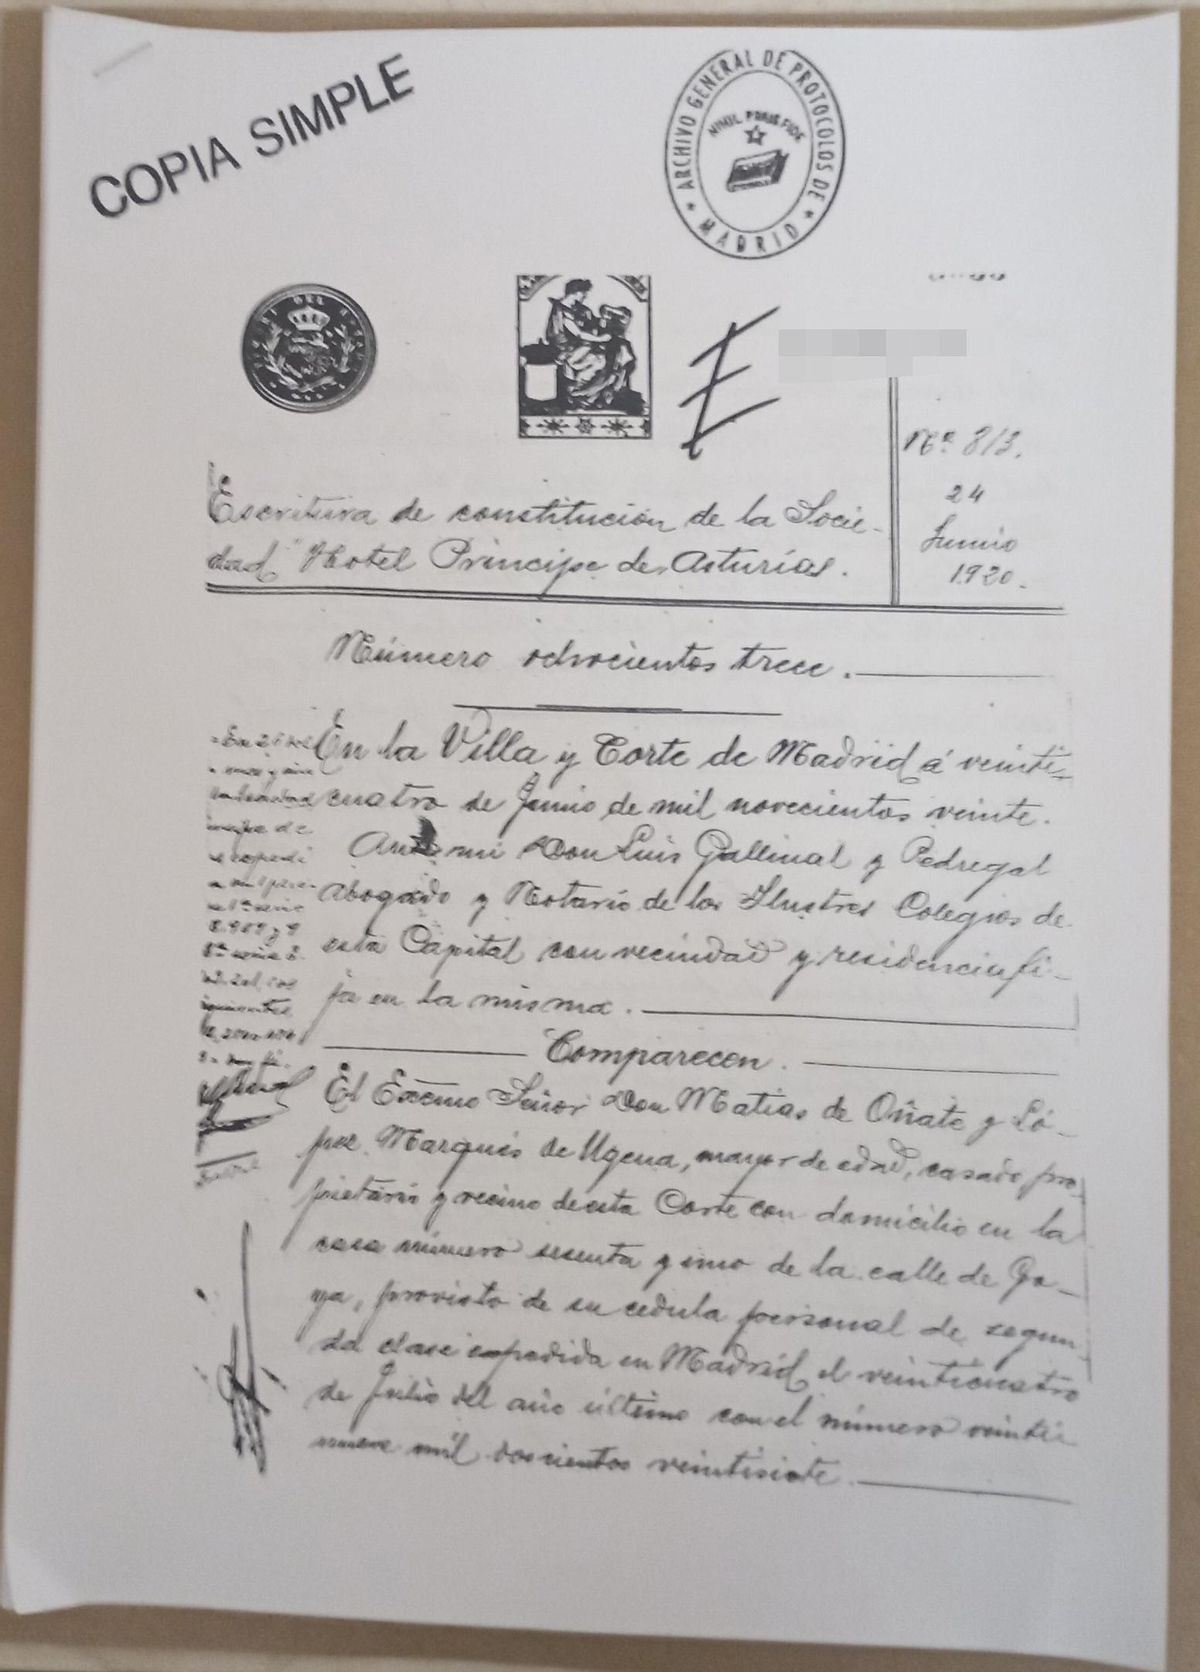 COPIA SIMPLE
ARCHIVO GENERAL DE PROTOCOLOS DE MADRID
NIHIL PRIUS FIDE
Nº 813.
24
Junio
1920.
Escritura de constitución de la Socie-
dad "Hotel Príncipe de Asturias.
Número ochocientos trece.
En la Villa y Corte de Madrid á veinti-
cuatro de Junio de mil novecientos veinte.
Ante mi Don Luis Gallinal y Pedregal
abogado y Notario de los Ilustres Colegios de
esta Capital con vecindad y residencia fi-
ja en la misma.
Comparecen.
El Excmo Señor Don Matias de Oñate y Ló-
pez, Marqués de Ugena, mayor de edad, casado pro-
pietario y vecino de esta Corte con domicilio en la
casa número sesenta y uno de la calle de Go-
ya, provisto de su cedula personal de segun-
da clase expedida en Madrid el veinticuatro
de Julio del año último con el número veinti-
nueve mil doscientos veintisiete.